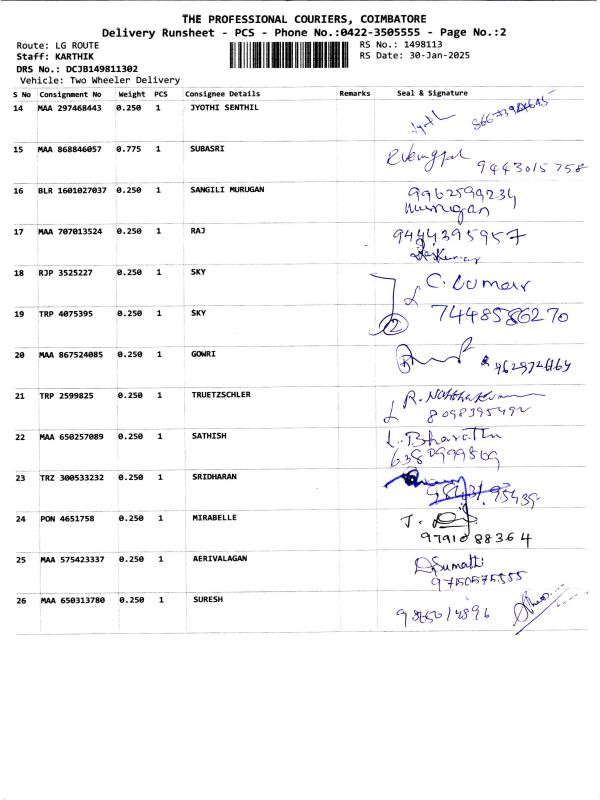 THE PROFESSIONAL COURIERS, COIMBATORE
Delivery Runsheet - PCS - Phone No.:0422-3505555 - Page No.:2
Route: LG ROUTE RS No.: 1498113
Staff: KARTHIK RS Date: 30-Jan-2025
DRS No.: DCJB149811302
Vehicle: Two Wheeler Delivery
S No Consignment No Weight PCS Consignee Details Remarks Seal & Signature
14 MAA 297468443 0.250 1 JYOTHI SENTHIL
15 MAA 868846057 0.775 1 SUBASRI
9443015758
16 BLR 1601027037 0.250 1 SANGILI MURUGAN 9962599234
Murugan
17 MAA 707013524 0.250 1 RAJ 9444395957
Rajkumar
18 RJP 3525227 0.250 1 SKY C. Kumar
19 TRP 4075395 0.250 1 SKY 7448586270
2
20 MAA 867524085 0.250 1 GOWRI
21 TRP 2599825 0.250 1 TRUETZSCHLER R.
8098395492
22 MAA 650257089 0.250 1 SATHISH L. Bharathi
6380999569
23 TRZ 300533232 0.250 1 SRIDHARAN
95439
24 PON 4651758 0.250 1 MIRABELLE J.
9791088364
25 MAA 575423337 0.250 1 AERIVALAGAN Sumathi
9750575555
26 MAA 650313780 0.250 1 SURESH